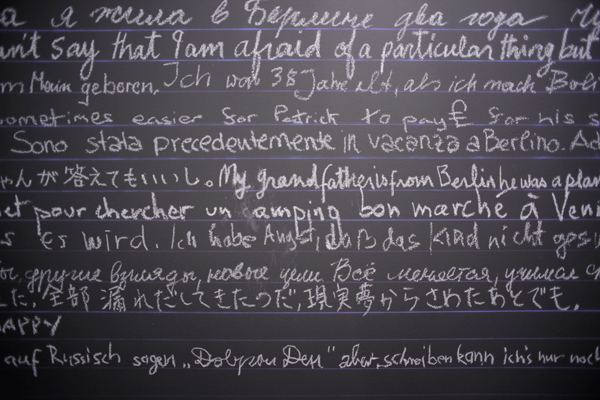 а я жила в Берлине два года
an't say that I am afraid of a particular thing but
m Main geboren. Ich war 38 Jahre alt, als ich nach Berli
sometimes easier for Patrick to pay £ for his s
Sono stata precedentemente in vacanza a Berlino. Ad
ゃんが答えてもいいし。My grandfather is from Berlin he was a plan
et pour chercher un amping bon marché à Veni
s es wird. Ich habe Angst, daß das Kind nicht gesu
ы, другие взгляды, новые цели Всё меняется, училась
た, 全部漏れだしてきたつだ, 現実夢からさわたあとでも。
APPY
auf Russisch sagen „Добрый Ден" aber schreiben kann ich's nur noch